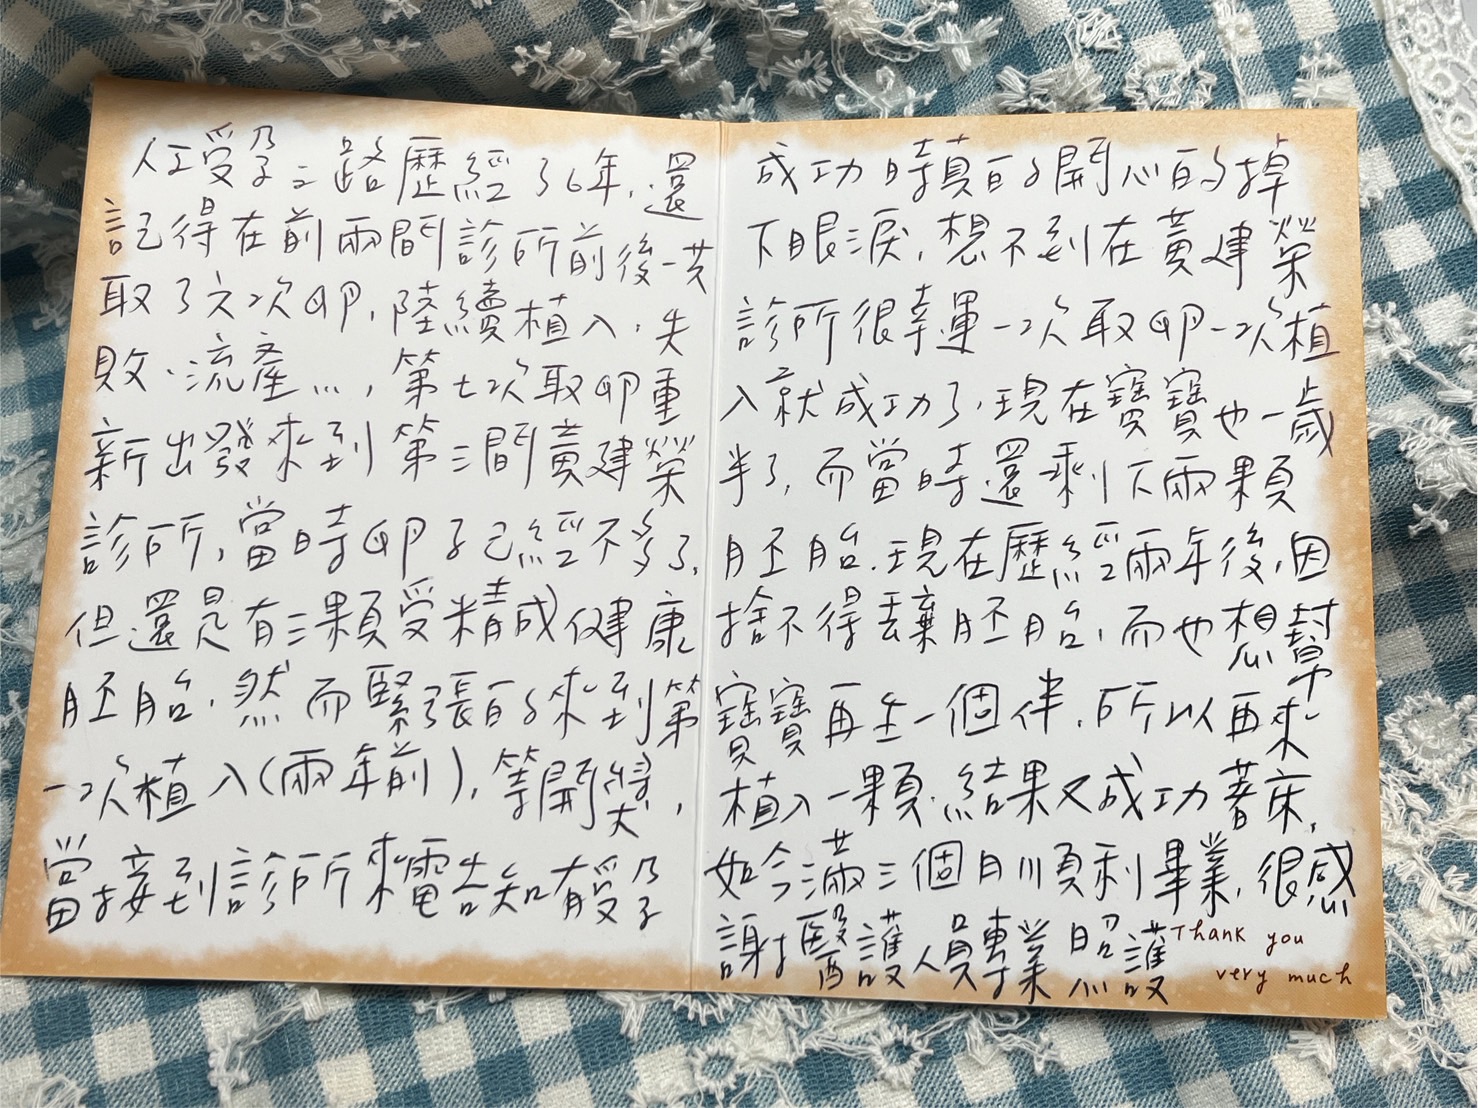 人工受孕之路歷經了6年，還
記得在前兩間診所前後一共
取了六次卵，陸續植入、失
敗、流產…，第七次取卵重
新出發來到第三間黃建榮
診所，當時卵子已經不多了，
但還是有三顆受精成健康
胚胎，然而緊張的來到第
一次植入(兩年前)，等開獎，
當接到診所來電告知有受孕
成功時真的開心的掉
下眼淚，想不到在黃建榮
診所很幸運一次取卵一次植
入就成功了，現在寶寶也一歲
半了，而當時還剩下兩顆
胚胎，現在歷經兩年後，因
捨不得丟棄胚胎，而也想幫
寶寶再生一個伴，所以再來
植入一顆，結果又成功著床，
如今滿三個月順利畢業，很感
謝醫護人員專業照護
Thank you
very much